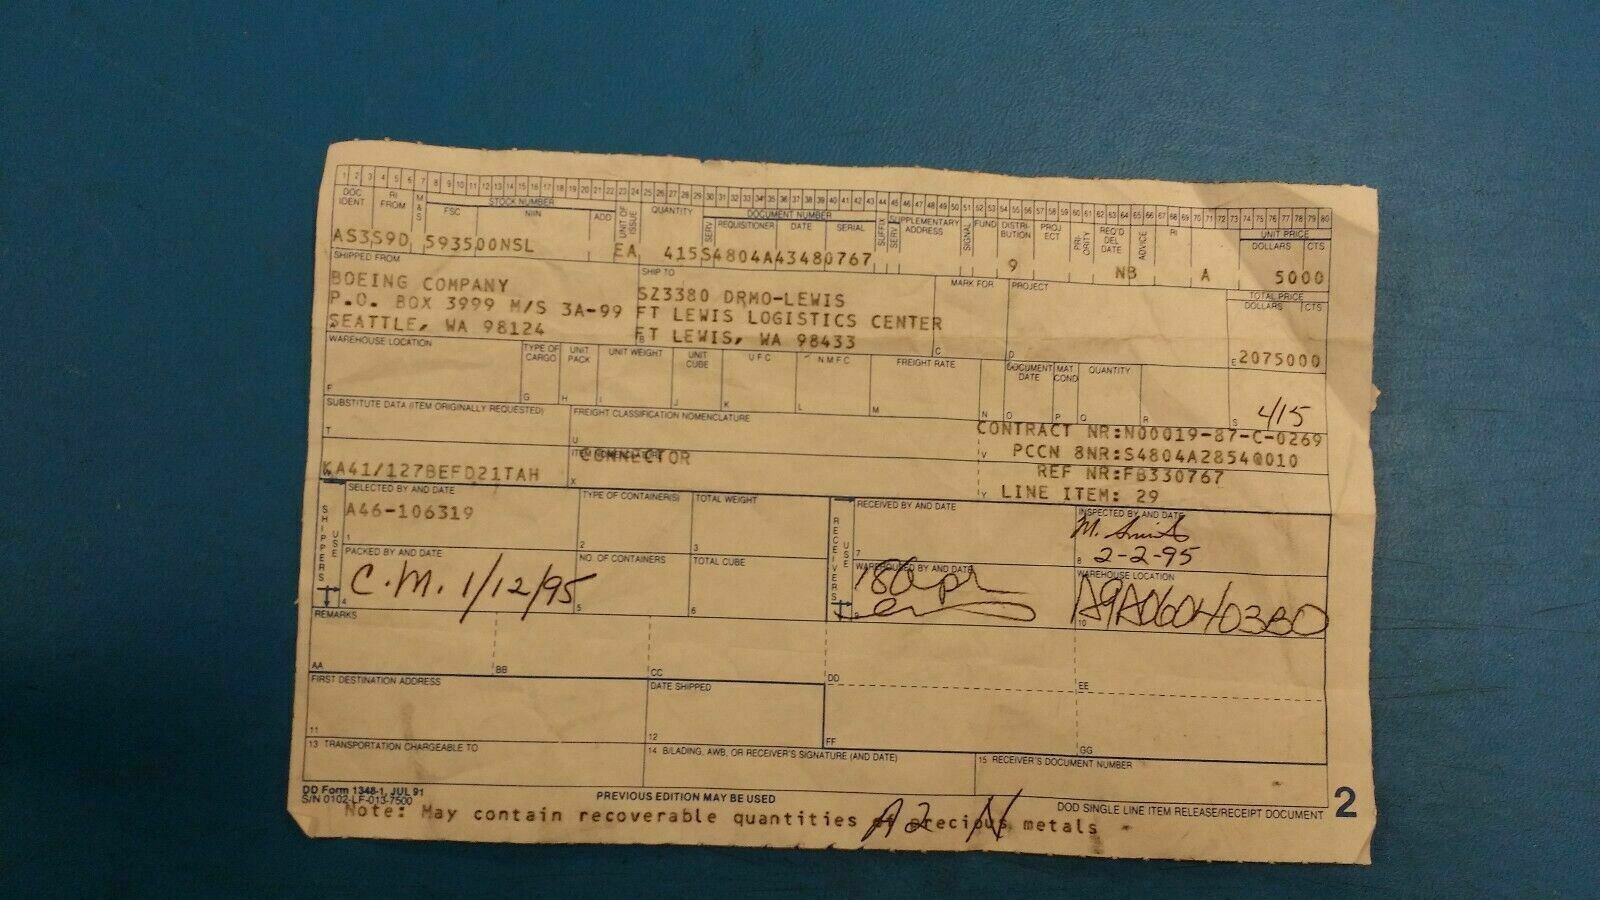 1 2 3 4 5 6 7 8 9 10 11 12 13 14 15 16 17 18 19 20 21 22 23 24 25 26 27 28 29 30 31 32 33 34 35 36 37 38 39 40 41 42 43 44 45 46 47 48 49 50 51 52 53 54 55 56 57 58 59 60 61 62 63 64 65 66 67 68 69 70 71 72 73 74 75 76 77 78 79 80
DOC IDENT RI FROM M&S STOCK NUMBER FSC NIIN ADD UNIT OF ISSUE QUANTITY SERV DOCUMENT NUMBER REQUISITIONER DATE SERIAL SUFFIX SERV SUPPLEMENTARY ADDRESS SIGNAL FUND DISTRI-BUTION PROJ ECT PRI ORITY REQ'D DEL DATE ADVICE RI UNIT PRICE DOLLARS CTS
AS3S9D 593500NSL EA 415S4804A43480767 9 NB A 5000
SHIPPED FROM SHIP TO MARK FOR PROJECT TOTAL PRICE
DOLLARS CTS
BOEING COMPANY SZ3380 DRMO-LEWIS
P.O. BOX 3999 M/S 3A-99 FT LEWIS LOGISTICS CENTER
SEATTLE, WA 98124 FT LEWIS, WA 98433
B C D E 2075000
WAREHOUSE LOCATION TYPE OF CARGO UNIT PACK UNIT WEIGHT UNIT CUBE UFC NMFC FREIGHT RATE DOCUMENT DATE MAT COND QUANTITY
F G H I J K L M N O P Q R S 4/15
SUBSTITUTE DATA (ITEM ORIGINALLY REQUESTED) FREIGHT CLASSIFICATION NOMENCLATURE
T U CONTRACT NR:N00019-87-C-0269
ITEM NOMENCLATURE CONNECTOR V PCCN 8NR:S4804A2854Q010
KA41/127BEFD21TAH X REF NR:FB330767
Y LINE ITEM: 29
SHIPPERS USE SELECTED BY AND DATE TYPE OF CONTAINER(S) TOTAL WEIGHT RECEIVERS USE RECEIVED BY AND DATE INSPECTED BY AND DATE
A46-106319 M. Smith
1 2 3 7 8 2-2-95
PACKED BY AND DATE NO. OF CONTAINERS TOTAL CUBE WAREHOUSED BY AND DATE WAREHOUSE LOCATION
C.M. 1/12/95 A9A060403B0
4 5 6 9 10
REMARKS
AA BB CC DD EE
FIRST DESTINATION ADDRESS DATE SHIPPED
11 12 FF GG
13 TRANSPORTATION CHARGEABLE TO 14 B/LADING, AWB, OR RECEIVER'S SIGNATURE (AND DATE) 15 RECEIVER'S DOCUMENT NUMBER
DD Form 1348-1, JUL 91 PREVIOUS EDITION MAY BE USED DOD SINGLE LINE ITEM RELEASE/RECEIPT DOCUMENT 2
S/N 0102-LF-013-7500
Note: May contain recoverable quantities of precious metals
A2 N